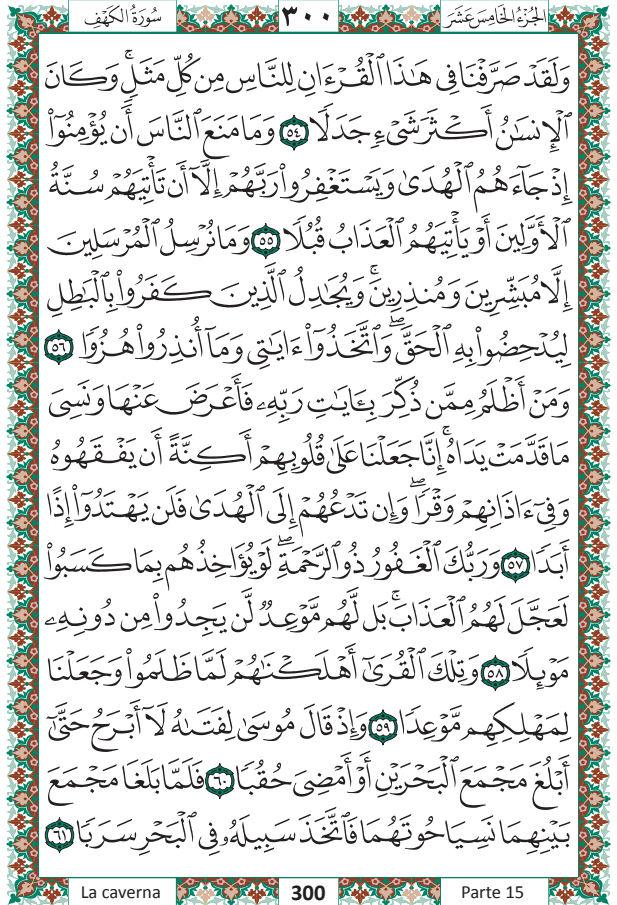 سُورَةُ الكَهْفِ ٣٠٠ الجُزْءُ الخَامِسَ عَشَرَ
وَلَقَدْ صَرَّفْنَا فِي هَٰذَا ٱلْقُرْءَانِ لِلنَّاسِ مِن كُلِّ مَثَلٍۚ وَكَانَ
ٱلْإِنسَٰنُ أَكْثَرَ شَىْءٍ جَدَلًا ٥٤ وَمَا مَنَعَ ٱلنَّاسَ أَن يُؤْمِنُوٓا۟
إِذْ جَآءَهُمُ ٱلْهُدَىٰ وَيَسْتَغْفِرُوا۟ رَبَّهُمْ إِلَّآ أَن تَأْتِيَهُمْ سُنَّةُ
ٱلْأَوَّلِينَ أَوْ يَأْتِيَهُمُ ٱلْعَذَابُ قُبُلًا ٥٥ وَمَا نُرْسِلُ ٱلْمُرْسَلِينَ
إِلَّا مُبَشِّرِينَ وَمُنذِرِينَۚ وَيُجَٰدِلُ ٱلَّذِينَ كَفَرُوا۟ بِٱلْبَٰطِلِ
لِيُدْحِضُوا۟ بِهِ ٱلْحَقَّۖ وَٱتَّخَذُوٓا۟ ءَايَٰتِى وَمَآ أُنذِرُوا۟ هُزُوًا ٥٦
وَمَنْ أَظْلَمُ مِمَّن ذُكِّرَ بِـَٔايَٰتِ رَبِّهِۦ فَأَعْرَضَ عَنْهَا وَنَسِىَ
مَا قَدَّمَتْ يَدَاهُۚ إِنَّا جَعَلْنَا عَلَىٰ قُلُوبِهِمْ أَكِنَّةً أَن يَفْقَهُوهُ
وَفِىٓ ءَاذَانِهِمْ وَقْرًاۖ وَإِن تَدْعُهُمْ إِلَى ٱلْهُدَىٰ فَلَن يَهْتَدُوٓا۟ إِذًا
أَبَدًا ٥٧ وَرَبُّكَ ٱلْغَفُورُ ذُو ٱلرَّحْمَةِۖ لَوْ يُؤَاخِذُهُم بِمَا كَسَبُوا۟
لَعَجَّلَ لَهُمُ ٱلْعَذَابَۚ بَل لَّهُم مَّوْعِدٌ لَّن يَجِدُوا۟ مِن دُونِهِۦ
مَوْئِلًا ٥٨ وَتِلْكَ ٱلْقُرَىٰٓ أَهْلَكْنَٰهُمْ لَمَّا ظَلَمُوا۟ وَجَعَلْنَا
لِمَهْلِكِهِم مَّوْعِدًا ٥٩ وَإِذْ قَالَ مُوسَىٰ لِفَتَىٰهُ لَآ أَبْرَحُ حَتَّىٰٓ
أَبْلُغَ مَجْمَعَ ٱلْبَحْرَيْنِ أَوْ أَمْضِىَ حُقُبًا ٦٠ فَلَمَّا بَلَغَا مَجْمَعَ
بَيْنِهِمَا نَسِيَا حُوتَهُمَا فَٱتَّخَذَ سَبِيلَهُۥ فِى ٱلْبَحْرِ سَرَبًا ٦١
La caverna 300 Parte 15